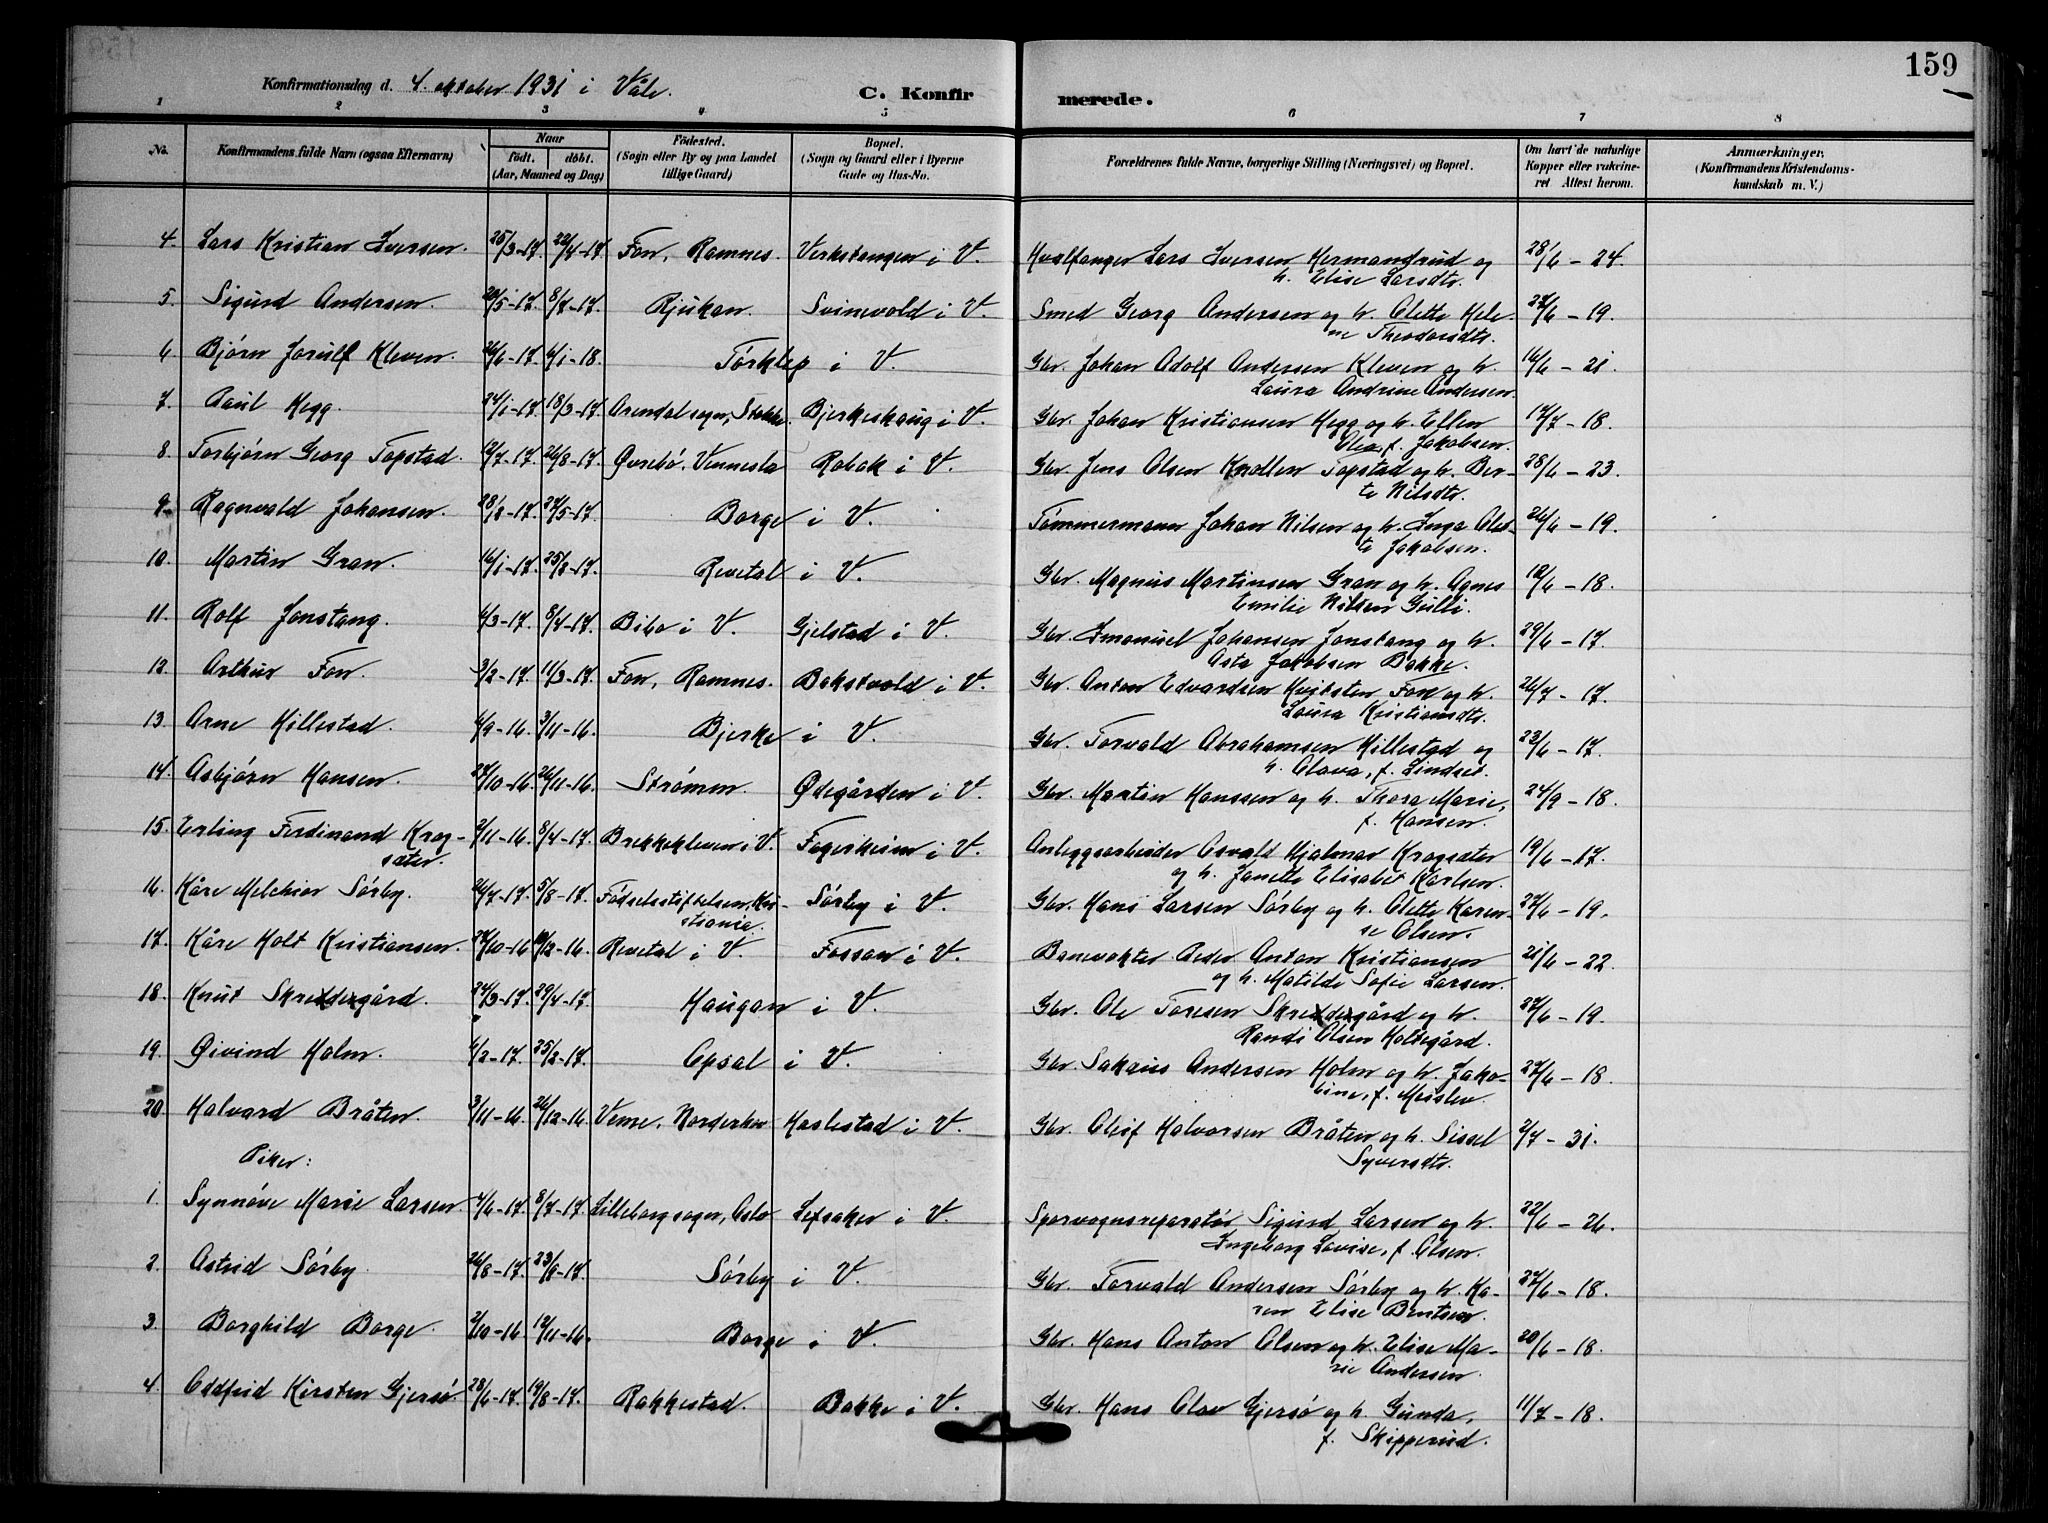 159
Konfirmationsdag d. 4. oktober 1931 i Våle.
C. Konfirmerede.
1 2 3 4 5 6 7 8
No. Konfirmandens fulde Navn (ogsaa Efternavn) Naar født. døbt. (Aar, Maaned og Dag) Fødested. (Sogn eller By og paa Landet tillige Gaard) Bopæl. (Sogn og Gaard eller i Byerne Gade og Hus-No. Forældrenes fulde Navne, borgerlige Stilling (Næringsvei) og Bopæl. Om havt de naturlige Kopper eller vakcineret Attest herom. Anmærkninger, (Konfirmandens Kristendomskundskab m. V.)
4. Lars Kristian Iversen. 25/3-17. 22/4-17. Fon, Ramnes. Verkstangen i V. Hvalfanger Lars Iversen Hermandrud og 28/6-24.
h. Elise Larsdtr.
5. Sigurd Andersen. 20/5-17. 8/7-17. Rjukan. Svinevold i V. Smed Georg Andersen og h. Olette Hele- 27/6-19.
ne Theodorsdtr.
6 Bjørn Jorulf Kleven. 26/6-17. 6/1-18. Tørklep i V. Gbr. Johan Adolf Andersen Kleven og h. 16/6-21.
Laura Andrine Andersen.
7. Paul Hegg. 24/1-17. 18/3-17. Arendal sogn, Stokke. Bjerkeshaug i V. Gbr. Johan Kristiansen Hegg og h. Ellen 17/7-18.
Olea, f. Jakobsen.
8. Torbjørn Georg Topstad. 12/7-17. 26/8-17. Øvrebø, Vennesla Robak i V. Gbr. Jens Olsen Knollen Topstad og h. Ber- 28/6-23.
te Nilsdtr.
9. Ragnvald Johansen. 28/2-17. 27/5-17. Borge i V. Tømmermann Johan Nilsen og h. Inga Olet- 26/6-19.
te Jakobsen.
10. Martin Gran. 16/1-17. 25/2-17. Revetal i V. Gbr. Magnus Martinsen Gran og h. Agnes 18/6-18.
Emilie Nilsen Gulli.
11. Rolf Jonstang. 6/3-17. 8/4-17. Bibo i V. Gjelstad i V. Gbr. Imanuel Johansen Jonstang og h. 29/6-17.
Asta Jakobsen Bakke.
12. Arthur Fon. 3/2-17. 11/3-17. Fon, Ramnes. Bakstvold i V. Gbr. Anton Edvardsen Hvitsten Fon og h. 26/7-17.
Laura Kristiansdtr.
13. Arne Hillestad. 6/9-16. 3/11-16. Bjerke i V. Gbr. Torvald Abrahamsen Hillestad og 23/6-17.
h. Olava, f. Lindset.
14. Asbjørn Hansen. 27/10-16. 26/11-16. Strømm. Ødegården i V. Gbr. Martin Hanssen og h. Thora Marie, 24/9-18.
f. Hansen.
15. Erling Ferdinand Krog- 2/11-16. 8/4-17. Brekkekleven i V. Fagerheim i V. Anleggsarbeider Osvald Hjalmar Krogsæter 19/6-17.
sæter. og h. Janette Elisabet Karlsen.
16. Kåre Melchior Sørby. 26/4-17. 5/8-17. Fødselsstiftelsen, Kri- Sørby i V. Gbr. Hans Larsen Sørby og h. Olette Karen- 27/6-19.
stiania. se Olsen.
17. Kåre Holt Kristiansen. 27/10-16 10/12-16. Revetal i V. Fossan i V. Banevokter Peder Anton Kristiansen 21/6-22.
og h. Matilde Sofie Larsen.
18. Knut Skreddergård. 24/3-17. 29/4-17. Haugan i V. Gbr. Ole Toresen Skreddergård og h. 27/6-19.
Randi Olsen Holtegård.
19. Øivind Holm. 6/2-17. 25/2-17. Opsal i V. Gbr. Sakarius Andersen Holm og h. Jako- 27/6-18.
bine, f. Meislev.
20 Halvard Bråten. 3/11-16. 26/12-16. Veme, Norderhov Haslestad i V. Gbr. Oluf Halvorsen Bråten og h. Sissel 2/7-31.
Syversdtr.
Piker:
1. Synnøve Marie Larsen. 4/6-17. 8/7-17. Lilleborg sogn, Oslo Lefsaker i V. Sporvognsreparatør Sigurd Larsen og h. 22/6-26.
Ingeborg Lovise, f. Olsen.
2. Astrid Sørby. 26/8-17. 23/9-17. Sørby i V. Gbr. Torvald Andersen Sørby og h. Ka- 27/6-18.
ren Elise Bentsen.
3. Borghild Borge. 2/10-16 12/11-16. Borge i V. Gbr. Hans Anton Olsen og h. Elise Ma- 20/6-18.
rie Andersen.
4. Oddfrid Kirsten Gjersø. 28/6-17. 19/8-17. Rakkestad. Bakke i V. Gbr. Hans Olav Gjersø og h. Gunda, 11/7-18.
f. Skipperud.